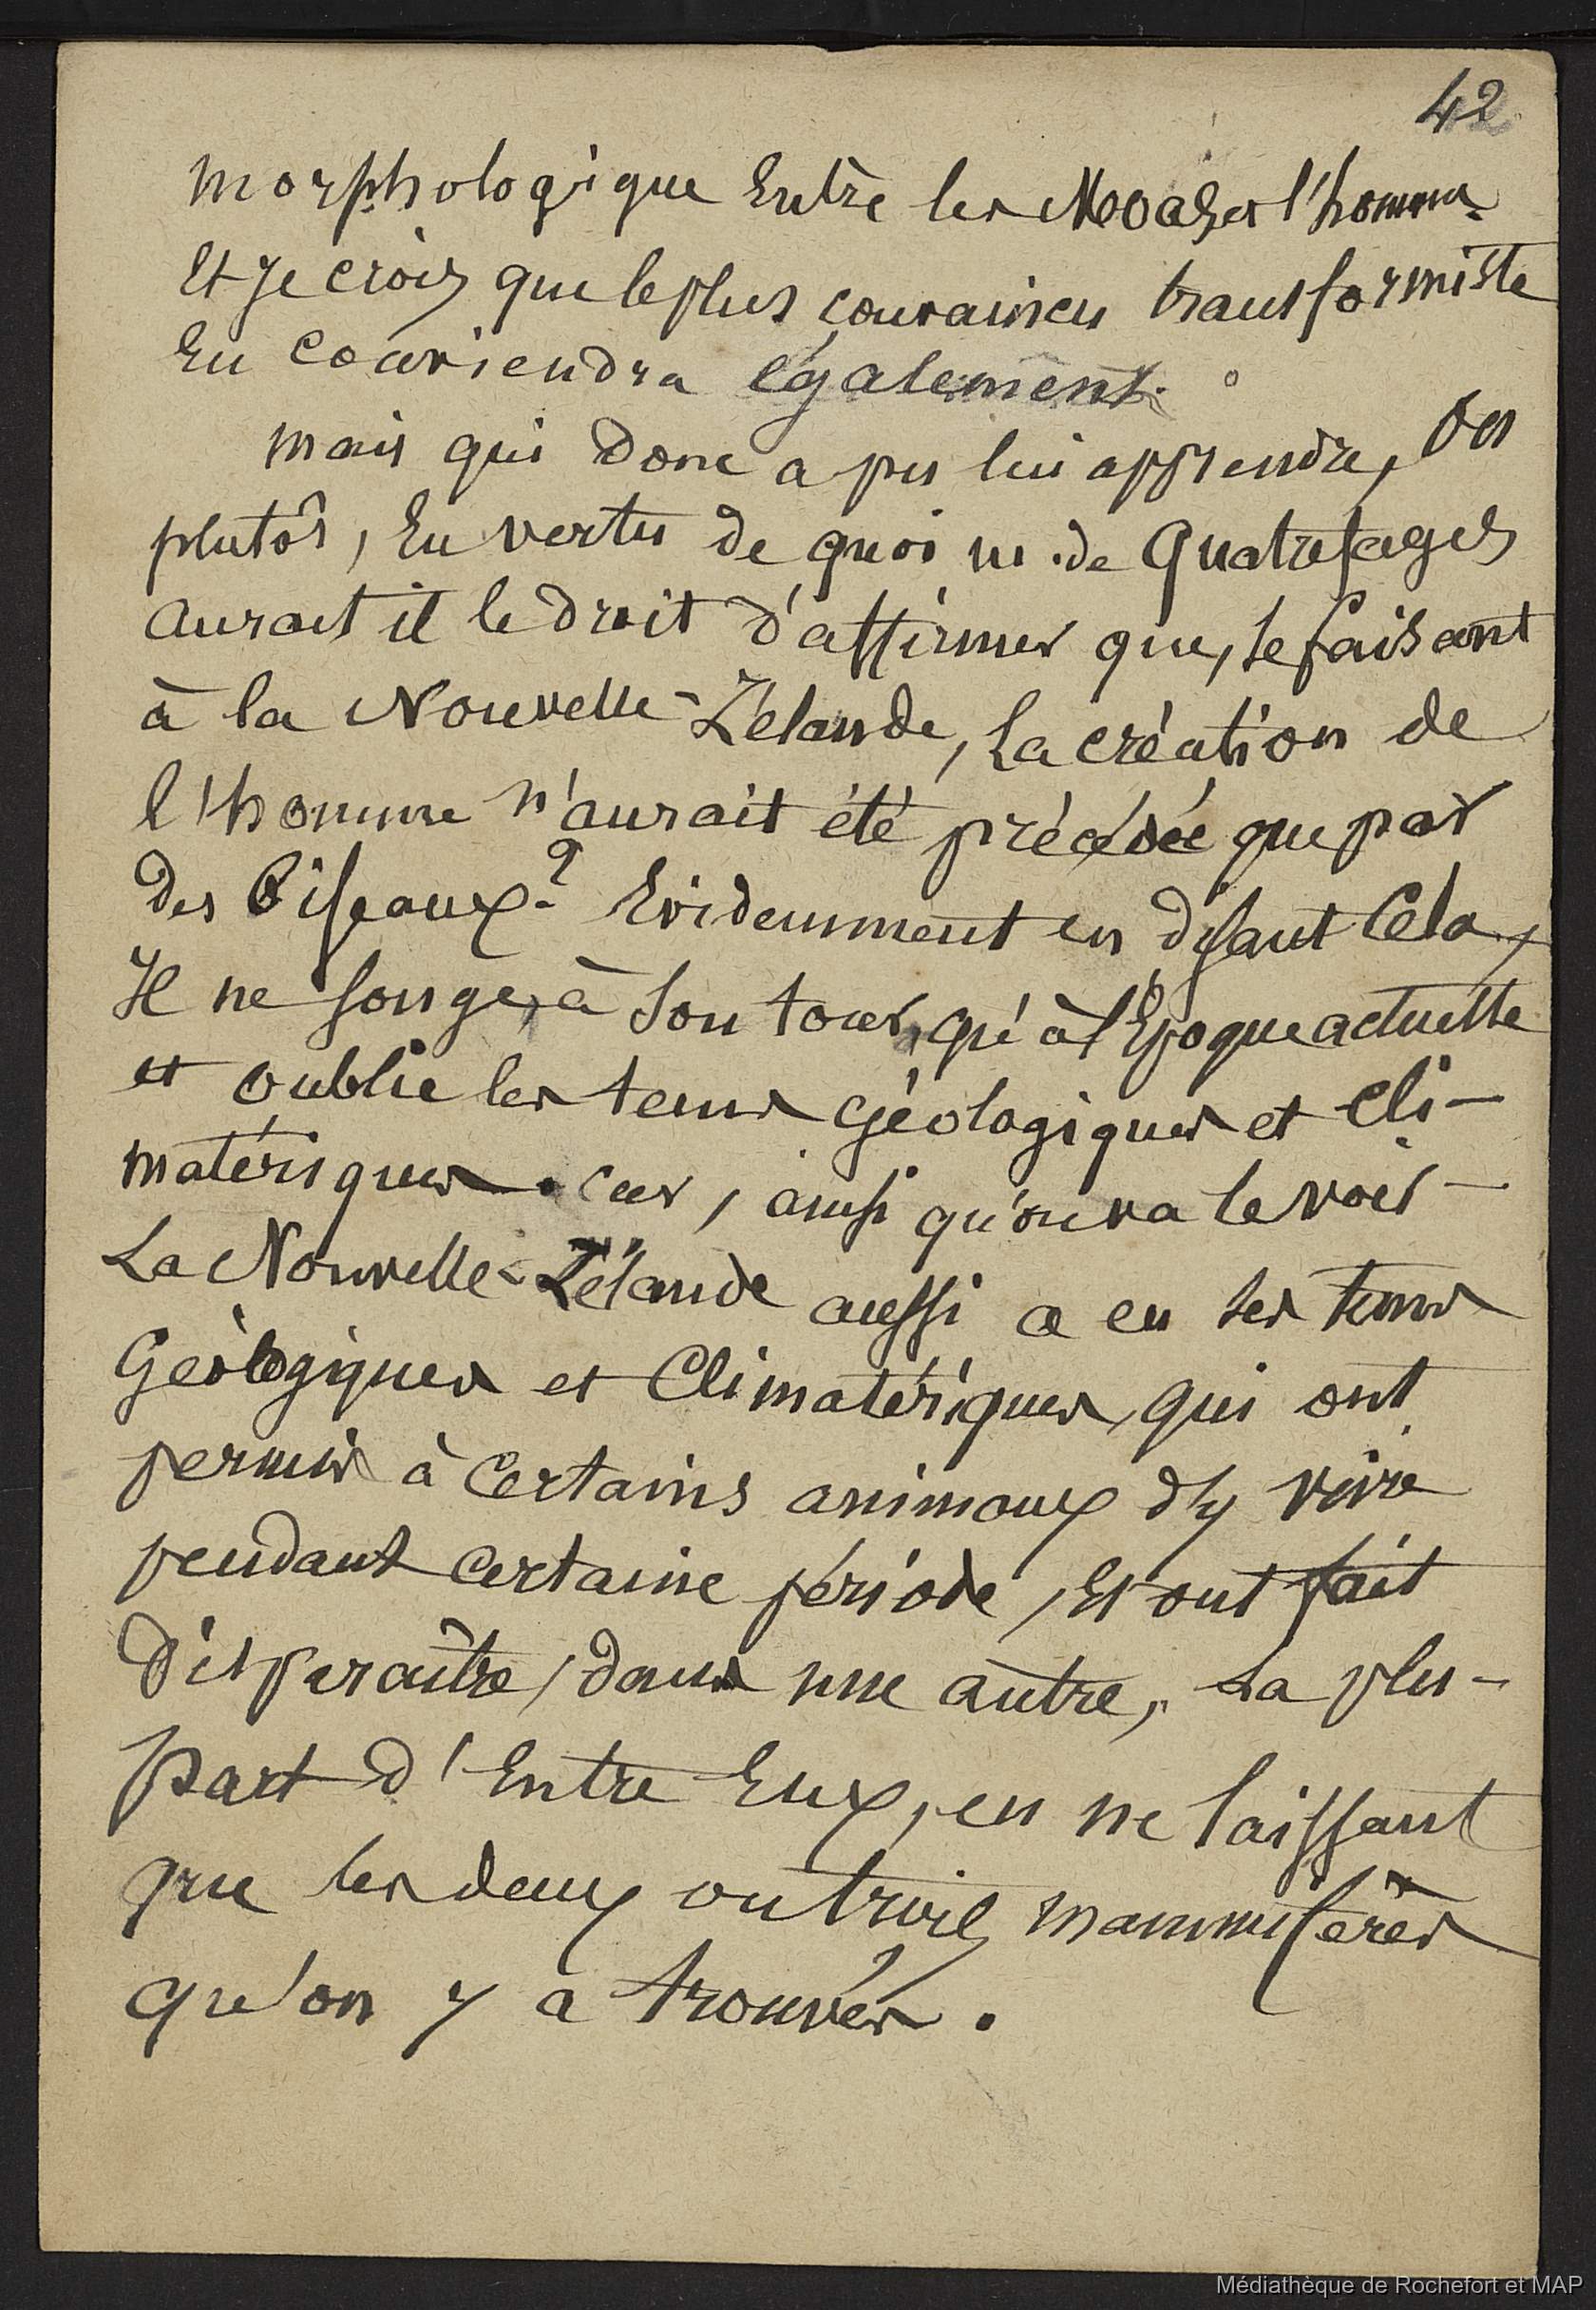 42
morphologique Entre les Moas et l'homme.
Et je crois que le plus convaincu transformiste
En conviendra également.
Mais qui donc a pu lui apprendre, ou
plutôt, En vertu de quoi m. de Quatrefages
aurait il le droit d'affirmer que, se faisant
à la Nouvelle-Zélande, la création de
l'homme n'aurait été précédée que par
des Oiseaux? Evidemment en disant Cela,
Il ne songe, à son tour, qu'à l'Epoque actuelle
et oublie les tems Géologiques et Cli-
matériques. car, ainsi qu'on va le voir -
La Nouvelle-Zélande aussi a eu ses tems
Géologiques et Climatériques, qui ont
permis à Certains animaux d'y vivre
pendant certaine période, Et ont fait
disparaître, dans une autre, La plu-
part d'Entre Eux, en ne laissant
que les deux ou trois mammifères
qu'on y a trouvés.
Médiathèque de Rochefort et MAP